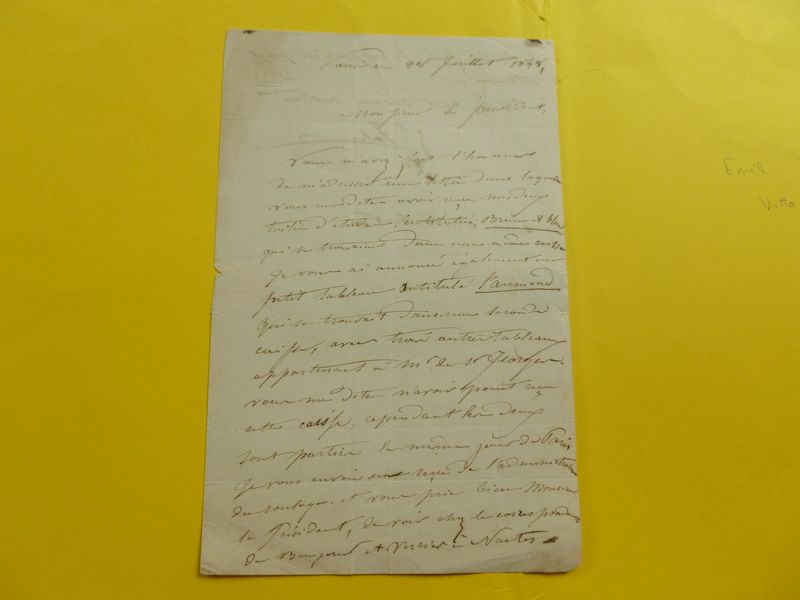 Paris ce 28 Juillet 1848,
Monsieur le président,
Vous m'avez fait l'honneur
de m'adresser une lettre dans laquelle
vous me dites avoir reçu mes deux
têtes d'étude, intitulées, Brune et blonde
qui se trouvaient dans une même caisse
Je vous ai annoncé également un
petit tableau intitulé l'aumone
qui se trouvait dans une seconde
caisse, avec trois autres tableaux
appartenant à Mr de St Georges.
vous me dites n'avoir point reçu
cette caisse, cependant les deux
sont parties le même jour de Paris
Je vous envoie un reçu de l'administration
du roulage. et vous prie bien Monsieur
le Président, de voir chez le correspondant
de et à Nantes
Emile
Vitta